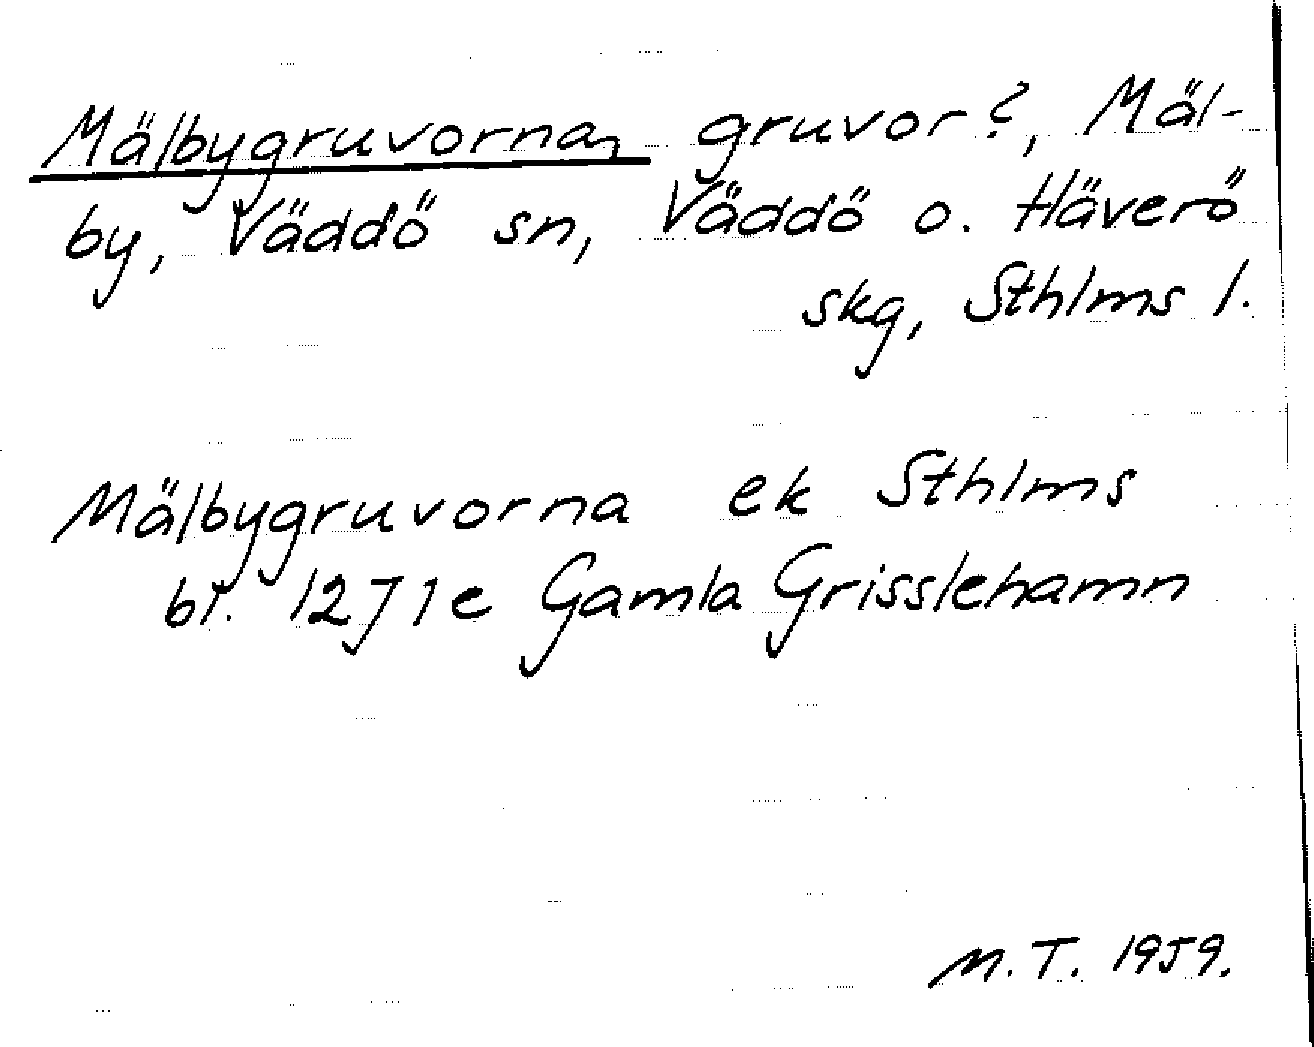 Mälbygruvorna, gruvor?, Mäl-
by, Väddö sn, Väddö o. Häverö
skg, Sthlms l.
Mälbygruvorna ek Sthlms
bl. 12J1e Gamla Grisslehamn
M.T. 1959.